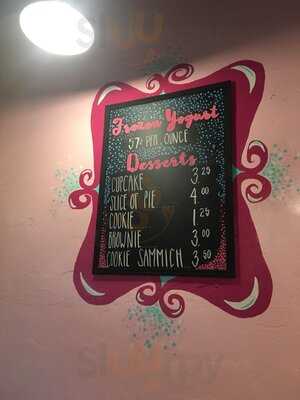 Frozen Yogurt
57¢ PER OUNCE
Desserts
CUPCAKE 3.25
SLICE OF PIE 4.00
COOKIE 1.25
BROWNIE 3.00
COOKIE SAMMICH 3.50